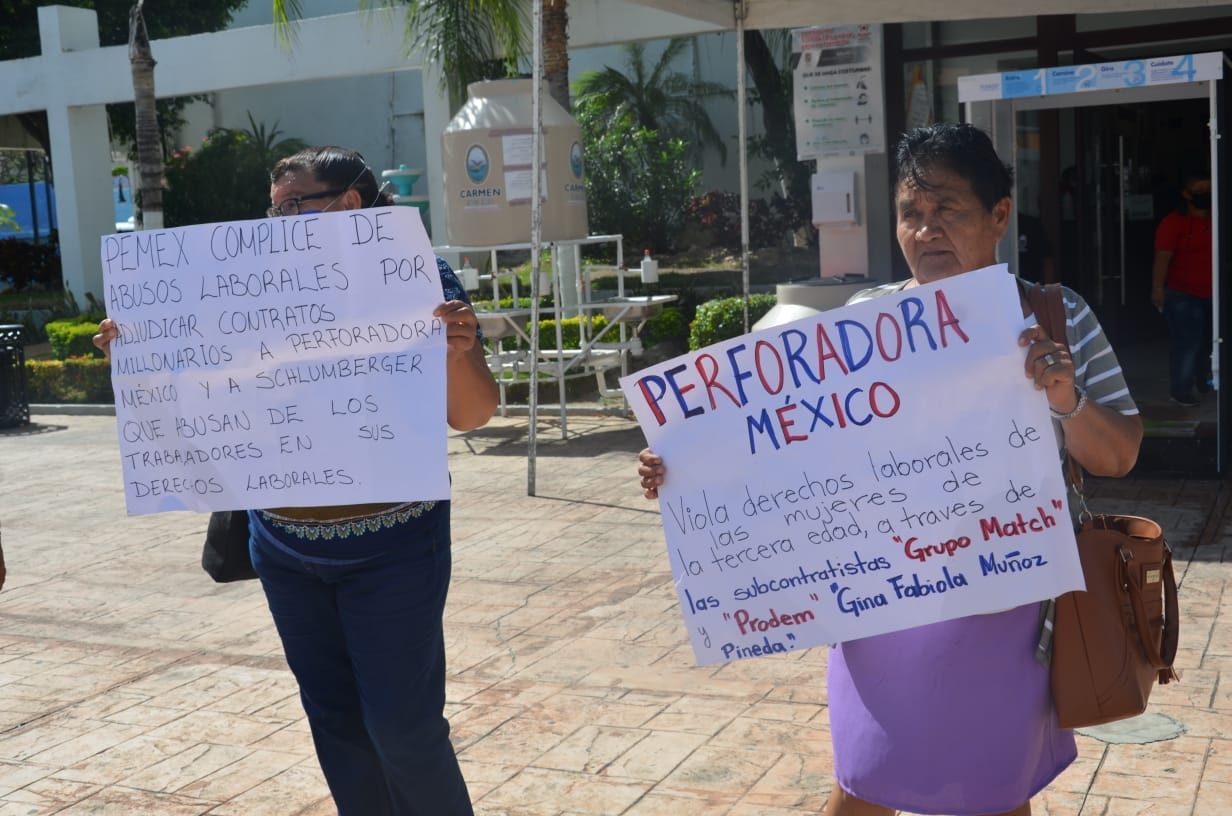 PEMEX COMPLICE DE
ABUSOS LABORALES POR
ADJUDICAR CONTRATOS
MILLONARIOS A PERFORADORA
MÉXICO Y A SCHLUMBERGER
QUE ABUSAN DE LOS
TRABAJADORES EN SUS
DERECHOS LABORALES.
PERFORADORA
MÉXICO
Viola derechos laborales de
las mujeres de
la tercera edad, a traves de
las subcontratistas "Grupo Match"
y "Prodem" "Gina Fabiola Muñoz
Pineda."
CARMEN
1 2 3 4